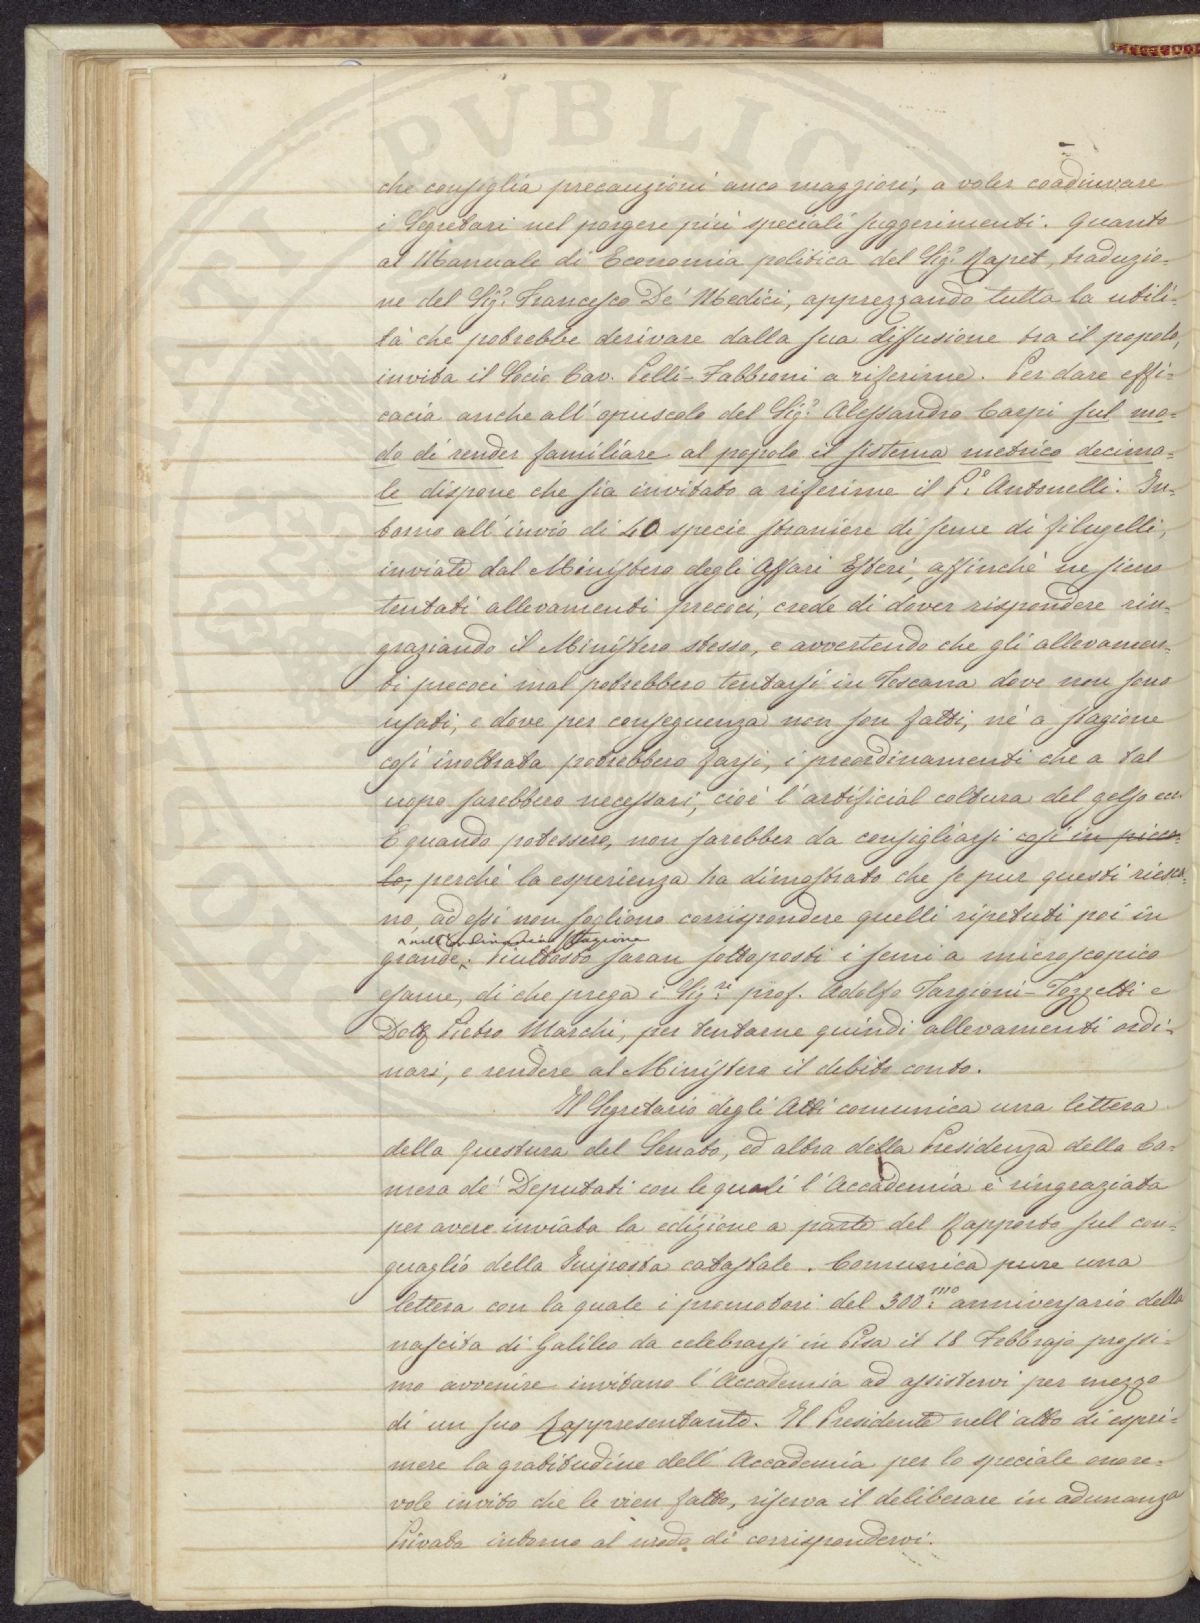 che consiglia precauzioni anco maggiori, a voler coadiuvare
i Segretari nel porgere più speciali suggerimenti. Quanto
al Manuale di Economia politica del Sig.r Rapet, traduzio-
ne del Sig.r Francesco De' Medici, apprezzando tutta la utili-
tà che potrebbe derivare dalla sua diffusione tra il popolo,
invita il Socio Cav. Pelli-Fabbroni a riferirne. Per dare effi-
cacia anche all'opuscolo del Sig.r Alessandro Carpi sul mo-
do di render familiare al popolo il sistema metrico decima-
le dispone che sia invitato a riferirne il P.e Antonelli. In-
torno all'invio di 40 specie straniere di seme di filugelli,
inviate dal Ministero degli Affari Esteri, affinchè ne sieno
tentati allevamenti precoci, crede di dover rispondere rin-
graziando il Ministero stesso, e avvertendo che gli allevamen-
ti precoci mal potrebbero tentarsi in Toscana dove non sono
usati, e dove per conseguenza non son fatti, nè a stagione
così inoltrata potrebbero farsi, i preordinamenti che a tal
uopo sarebbero necessari, cioè l'artificial coltura del gelso ec.
E quando potessero, non sarebber da consigliarsi così in picco-
lo, perchè la esperienza ha dimostrato che se pur questi riesco-
no, ad essi non sogliono corrispondere quelli ripetuti poi in
nell'ordinaria stagione
grande. Piuttosto saran sottoposti i semi a microscopico
esame, di che prega i Sig.ri prof. Adolfo Targioni-Tozzetti e
Dott. Pietro Marchi, per tentarne quindi allevamenti ordi-
nari, e rendere al Ministero il debito conto.
Il Segretario degli Atti comunica una lettera
della Questura del Senato, ed altra della Presidenza della Ca-
mera de' Deputati con le quali l'Accademia è ringraziata
per avere inviata la edizione a parte del Rapporto sul con-
guaglio della Imposta catastale. Comunica pure una
lettera con la quale i promotori del 300.mo anniversario della
nascita di Galileo da celebrarsi in Pisa il 18 Febbrajo prossi-
mo avvenire invitano l'Accademia ad assistervi per mezzo
di un suo Rappresentante. Il Presidente nell'atto di espri-
mere la gratitudine dell'Accademia per lo speciale onore-
vole invito che le vien fatto, riserva il deliberare in adunanza
Privata intorno al modo di corrispondervi.